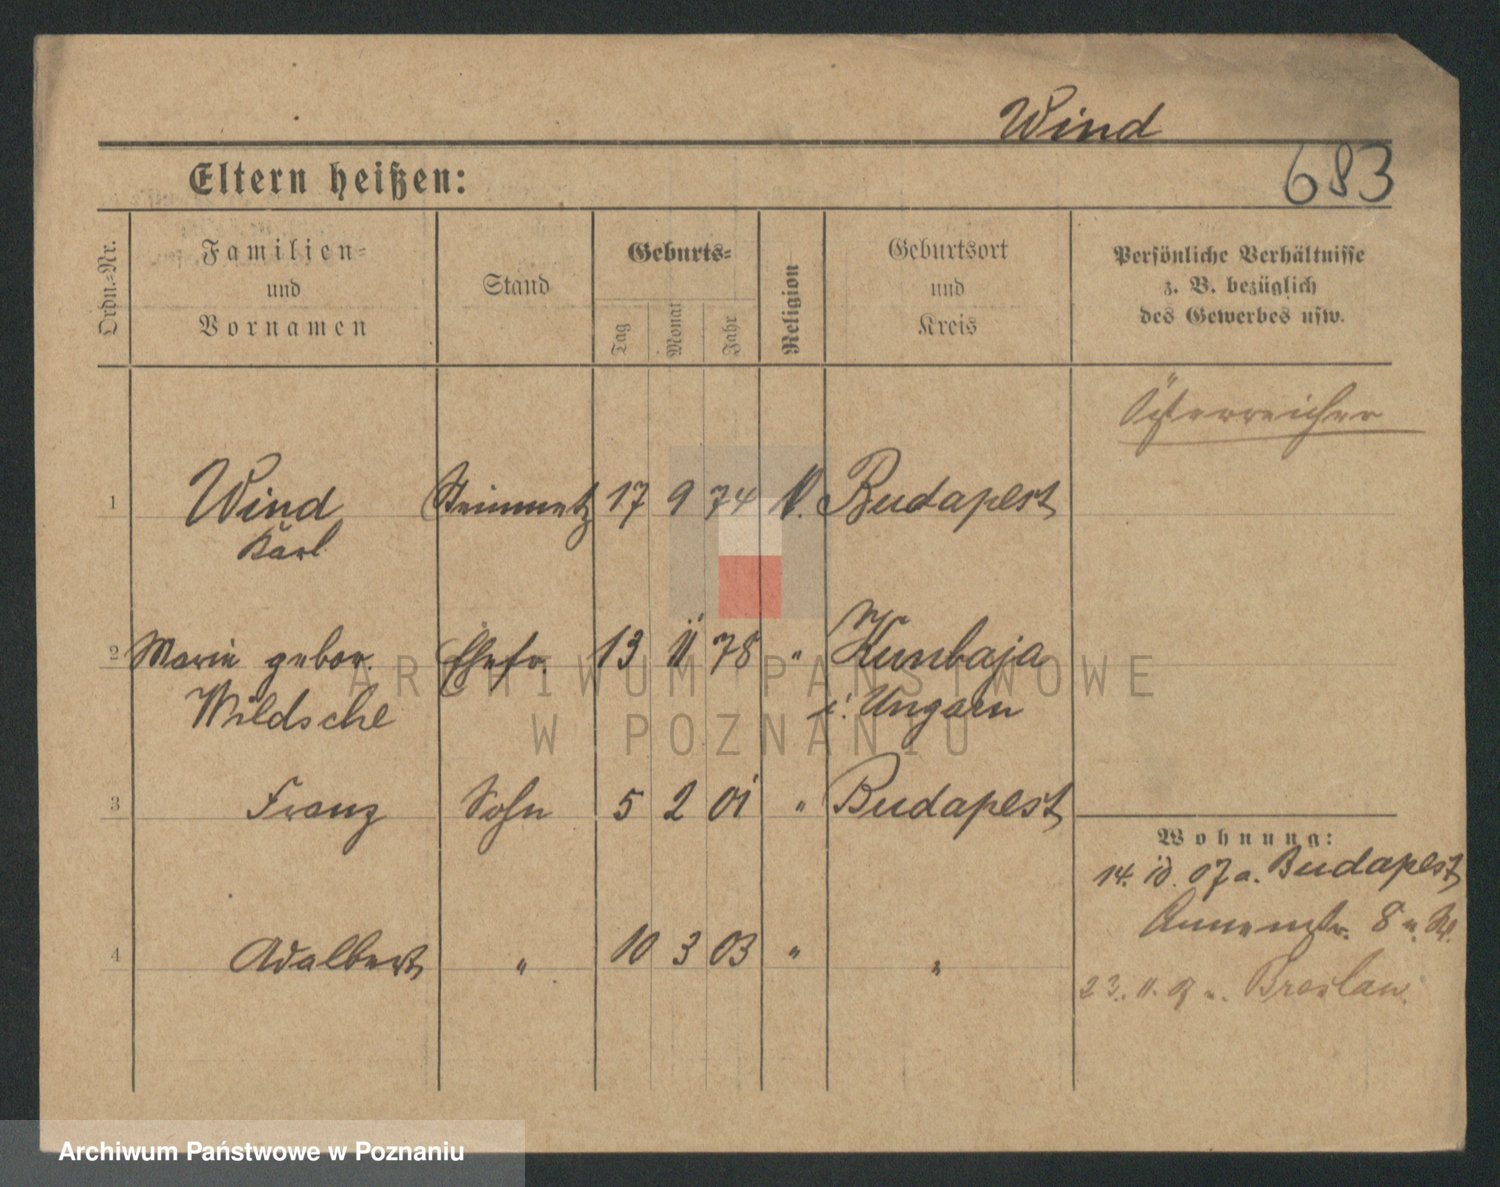 Wind
683
Eltern heißen:
Ordn.-Nr.
Familien-
und
Vornamen
Stand
Geburts-
Tag
Monat
Jahr
Religion
Geburtsort
und
Kreis
Persönliche Verhältnisse
z. B. bezüglich
des Gewerbes usw.
Österreicher
1 Wind Steinmetz 17 9 74 Budapest
Karl
2 Marie gebor. Ehefr. 13 11 78 " Kunbaja
Wildsche i. Ungarn
3 Franz Sohn 5 2 01 " Budapest
4 Adalbert " 10 3 03 " "
Wohnung:
14. 10. 07 a. Budapest
Annenstr. 8
23. 11. Breslau
ARCHIWUM PAŃSTWOWE
W POZNANIU
Archiwum Państwowe w Poznaniu